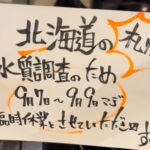 北海道の
札幌
水質調査のため
9月7日〜9月9日まで
臨時休業とさせていただきます